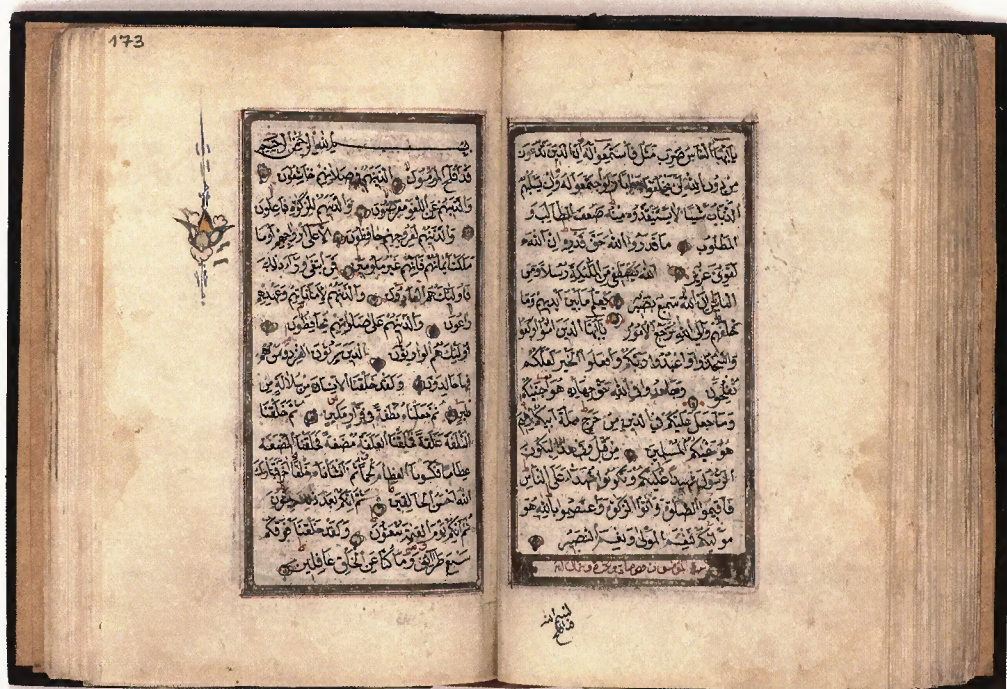 يا ايها الناس ضرب مثل فاستمعوا له ان الذين تدعون
من دون الله لن يخلقوا ذبابا ولو اجتمعوا له وان يسلبهم
الذباب شيئا لا يستنقذوه منه ضعف الطالب و
المطلوب ما قدروا الله حق قدره ان الله
لقوي عزيز الله يصطفي من الملئكة رسلا ومن
الناس ان الله سميع بصير يعلم ما بين ايديهم وما
خلفهم والى الله ترجع الامور يا ايها الذين امنوا اركعوا
واسجدوا واعبدوا ربكم وافعلوا الخير لعلكم
تفلحون وجاهدوا في الله حق جهاده هو اجتبيكم
وما جعل عليكم في الدين من حرج ملة ابيكم ابرهيم
هو سميكم المسلمين من قبل وفي هذا ليكون
الرسول شهيدا عليكم وتكونوا شهداء على الناس
فاقيموا الصلوة واتوا الزكوة واعتصموا بالله هو
موليكم فنعم المولى ونعم النصير
سورة المؤمنون
بسم الله
173
بسم الله الرحمن الرحيم
قد افلح المؤمنون الذين هم في صلاتهم خاشعون
والذين هم عن اللغو معرضون والذين هم للزكوة فاعلون
والذين هم لفروجهم حافظون الا على ازواجهم او ما
ملكت ايمانهم فانهم غير ملومين فمن ابتغى وراء ذلك
فاولئك هم العادون والذين هم لاماناتهم وعهدهم
راعون والذين هم على صلواتهم يحافظون
اولئك هم الوارثون الذين يرثون الفردوس هم
فيها خالدون ولقد خلقنا الانسان من سلالة من
طين ثم جعلناه نطفة في قرار مكين ثم خلقنا
النطفة علقة فخلقنا العلقة مضغة فخلقنا المضغة
عظاما فكسونا العظام لحما ثم انشاناه خلقا اخر فتبارك
الله احسن الخالقين ثم انكم بعد ذلك لميتون
ثم انكم يوم القيمة تبعثون ولقد خلقنا فوقكم
سبع طرائق وما كنا عن الخلق غافلين